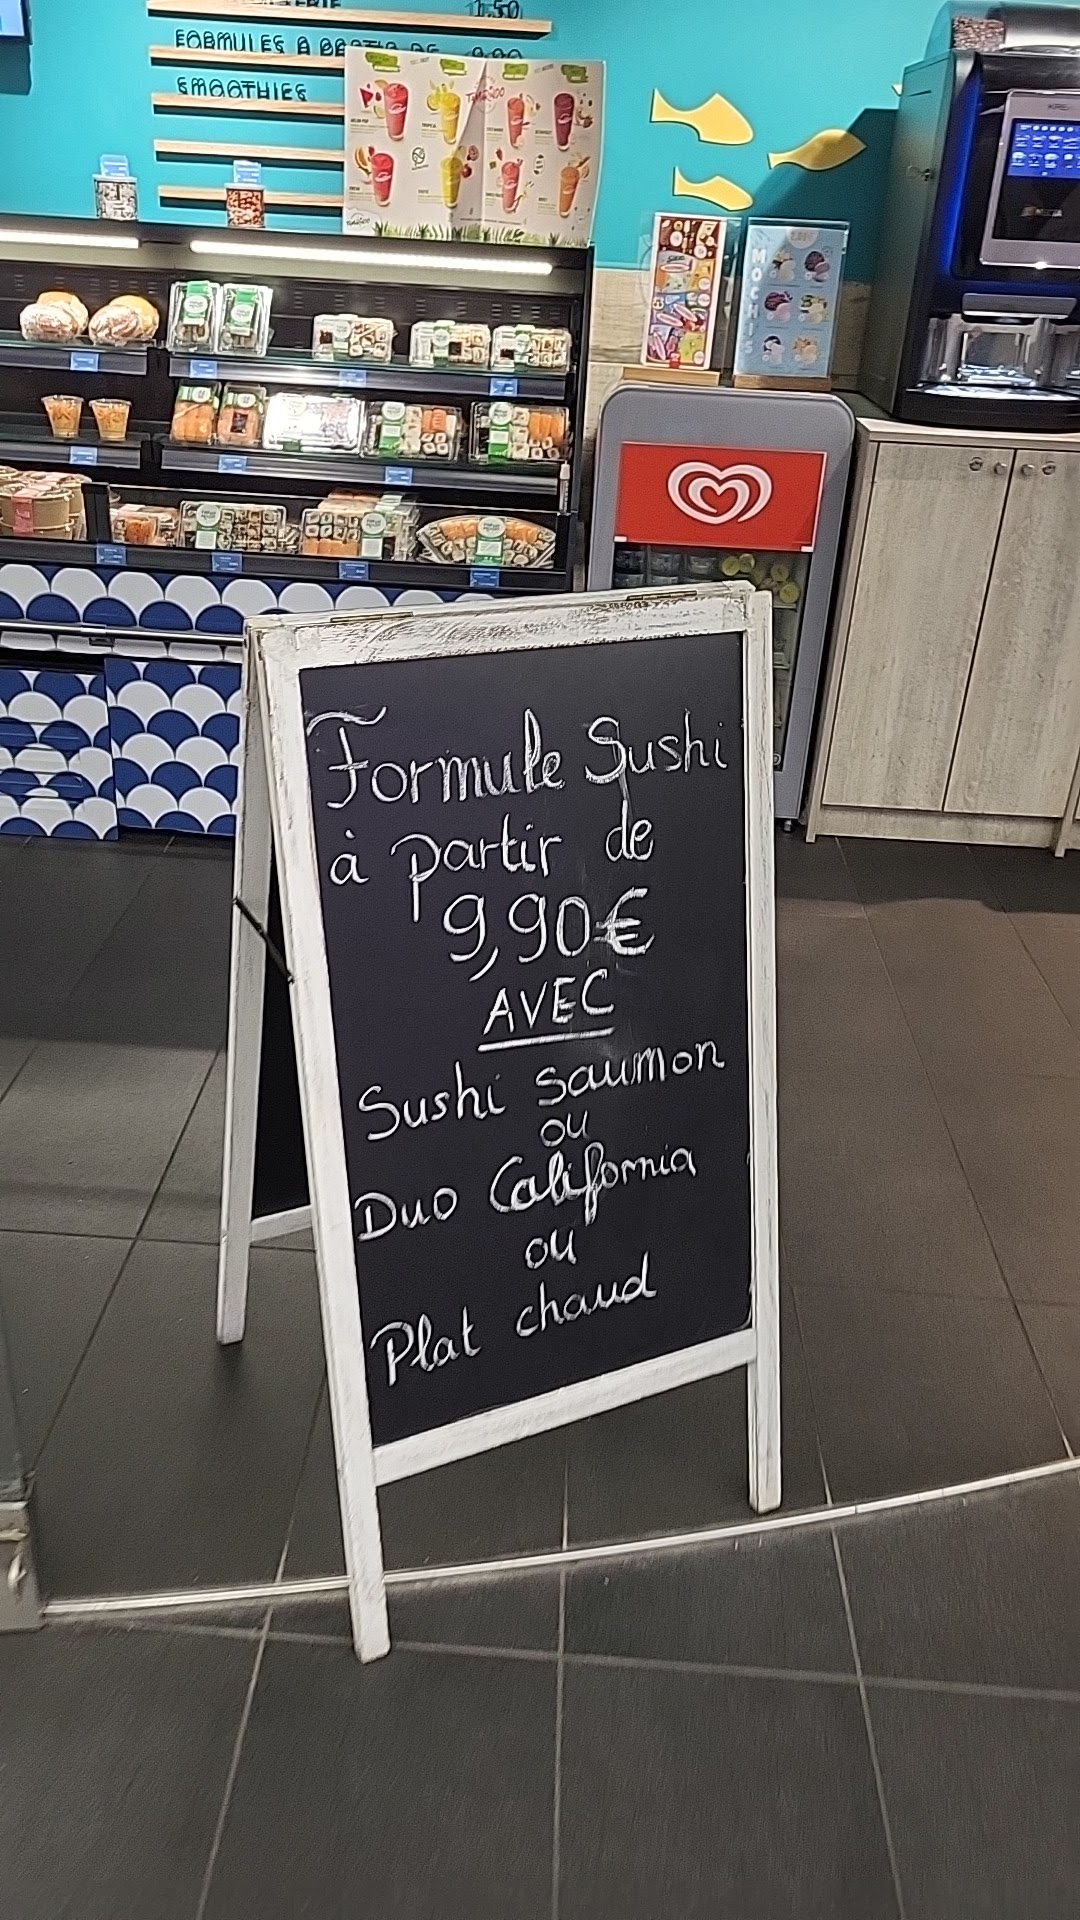 1.50
FORMULES A PARTIR DE 9.90
SMOOTHIES
MOCHIS
Formule Sushi
à partir de
9,90€
AVEC
Sushi saumon
ou
Duo California
ou
Plat chaud